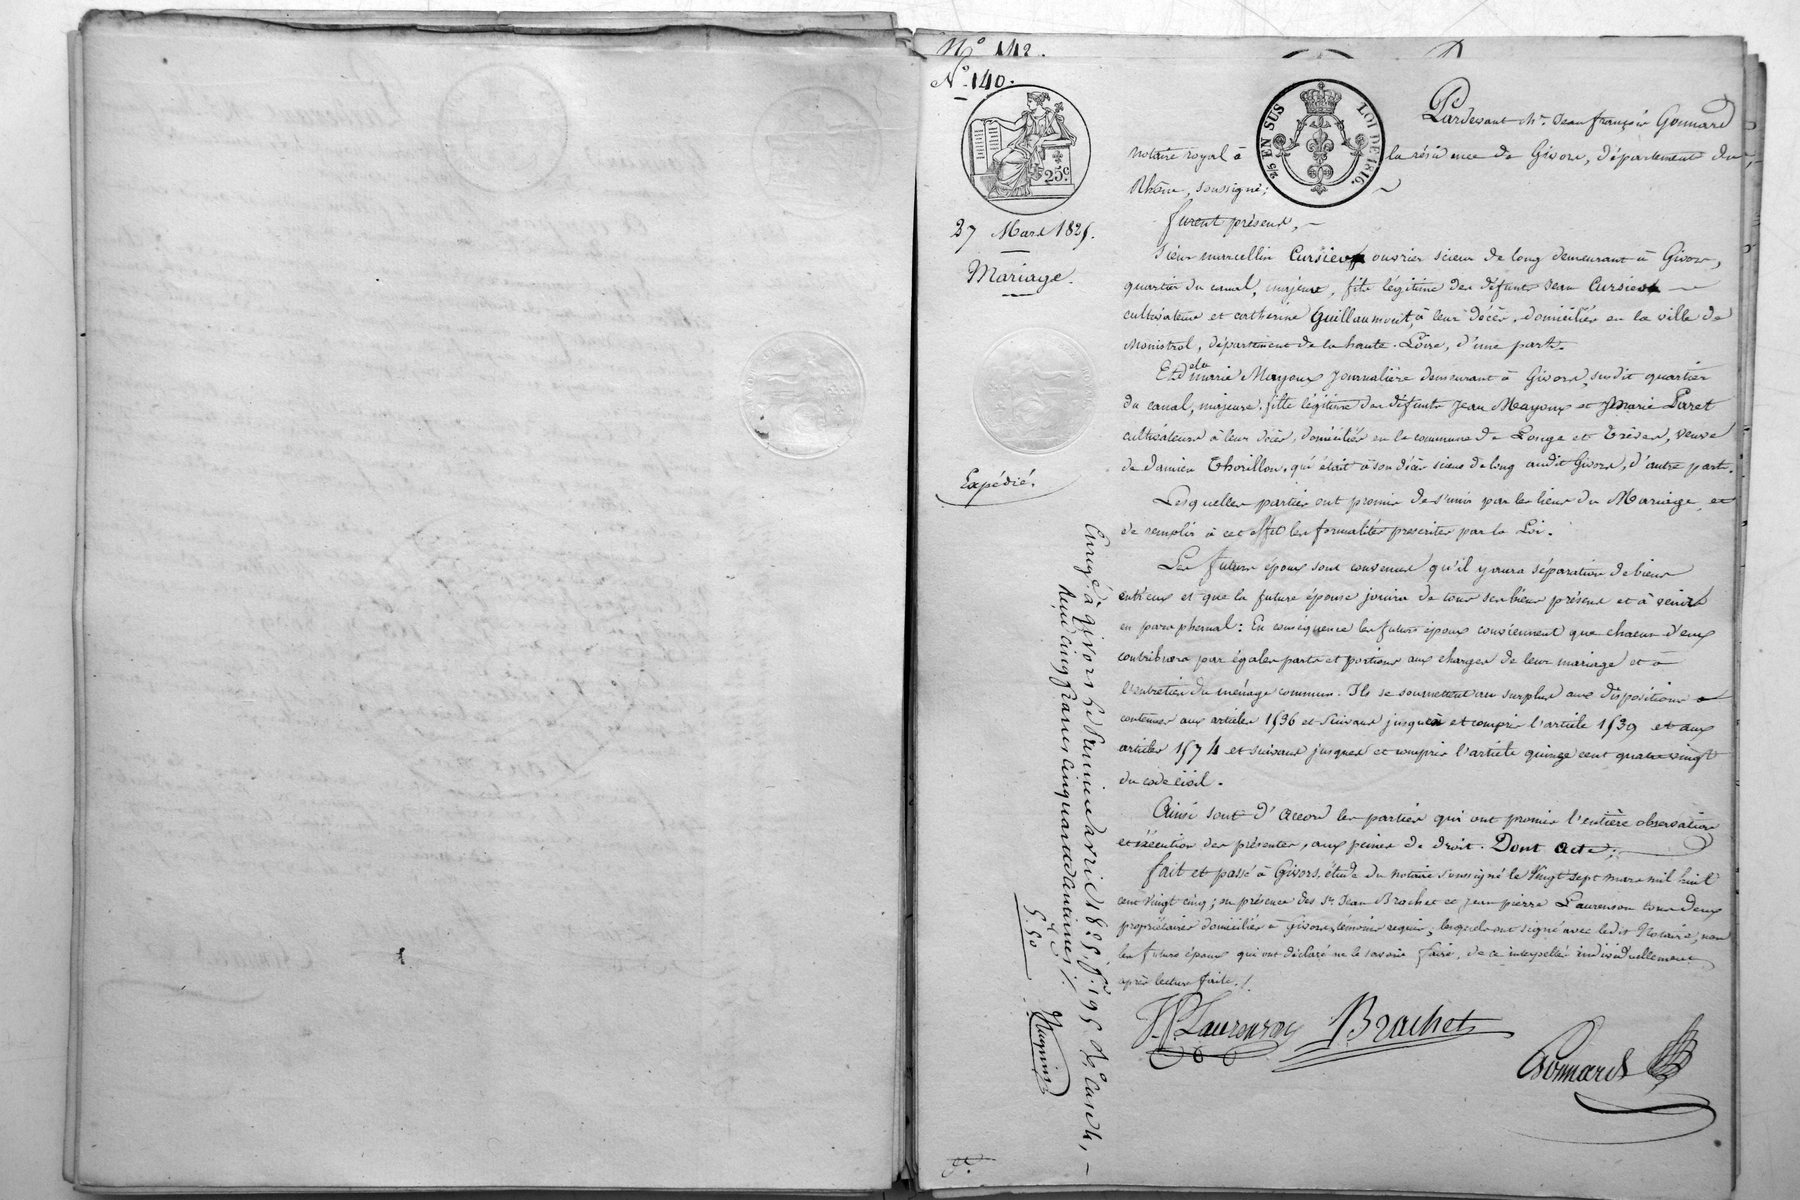 N.° 142.
N.° 140.
25 c.
2/5 EN SUS
LOI DE 1816.
27 Mars 1825.
Mariage.
Expédié.
Pardevant Me. Jean françois Gonnard
Notaire royal à la résidence de Givors, département du
Rhône, soussigné;
furent présens,
Sieur marcellin Cursieux ouvrier scieur de long demeurant à Givors,
quartier du canal, majeur, fils légitime des défunts Jean Cursieux
cultivateur et catherine Guillaumont, à leur décès, domiciliés en la ville de
Monistrol, département de la haute-Loire, d'une part.
Et dlle marie Mayoux Journalière demeurant à Givors, susdit quartier
du canal, majeure, fille légitime des défunts Jean Mayoux et Marie Paret
cultivateurs à leur décès, domiciliés en la commune de Longe et Trèves, veuve
de Damien Thorillon, qui était à son décès scieur de long audit Givors, d'autre part.
Lesquelles parties ont promis de s'unir par les liens du Mariage, et
de remplir à cet effet les formalités prescrites par la Loi.
Les futurs époux sont convenus qu'il y aura séparation de biens
entr'eux et que la future épouse jouira de tous ses biens présens et à venir
en paraphernal: En conséquence les futurs époux conviennent que chacun d'eux
contribuera par égales parts et portions aux charges de leur mariage et à
l'entretien du ménage commun. Ils se soumettent au surplus aux dispositions
contenues aux articles 1536 et suivans jusques et compris l'article 1539 et aux
articles 1574 et suivans jusques et compris l'article quinze cent quatre vingt
du code civil.
Ainsi sont d'accord les parties qui ont promis l'entière observation
et exécution des présentes, aux peines de droit. Dont acte;
fait et passé à Givors, étude du notaire soussigné le vingt sept mars mil huit
cent vingt cinq; en présence des Srs. Jean Brachet et Jean pierre Laurenson tous deux
propriétaires domiciliés à Givors, témoins requis; lesquels ont signé avec ledit Notaire, non
les futurs époux qui ont déclaré ne le savoir faire, de ce interpellés individuellement
après lecture faite./.
J. P. Laurenson
Brachet
Gonnard
Enreg.é à givors le Premier avril 1825, f.° 195 V.° case 4,
Reçu cinq francs cinquante centimes /.
5.50